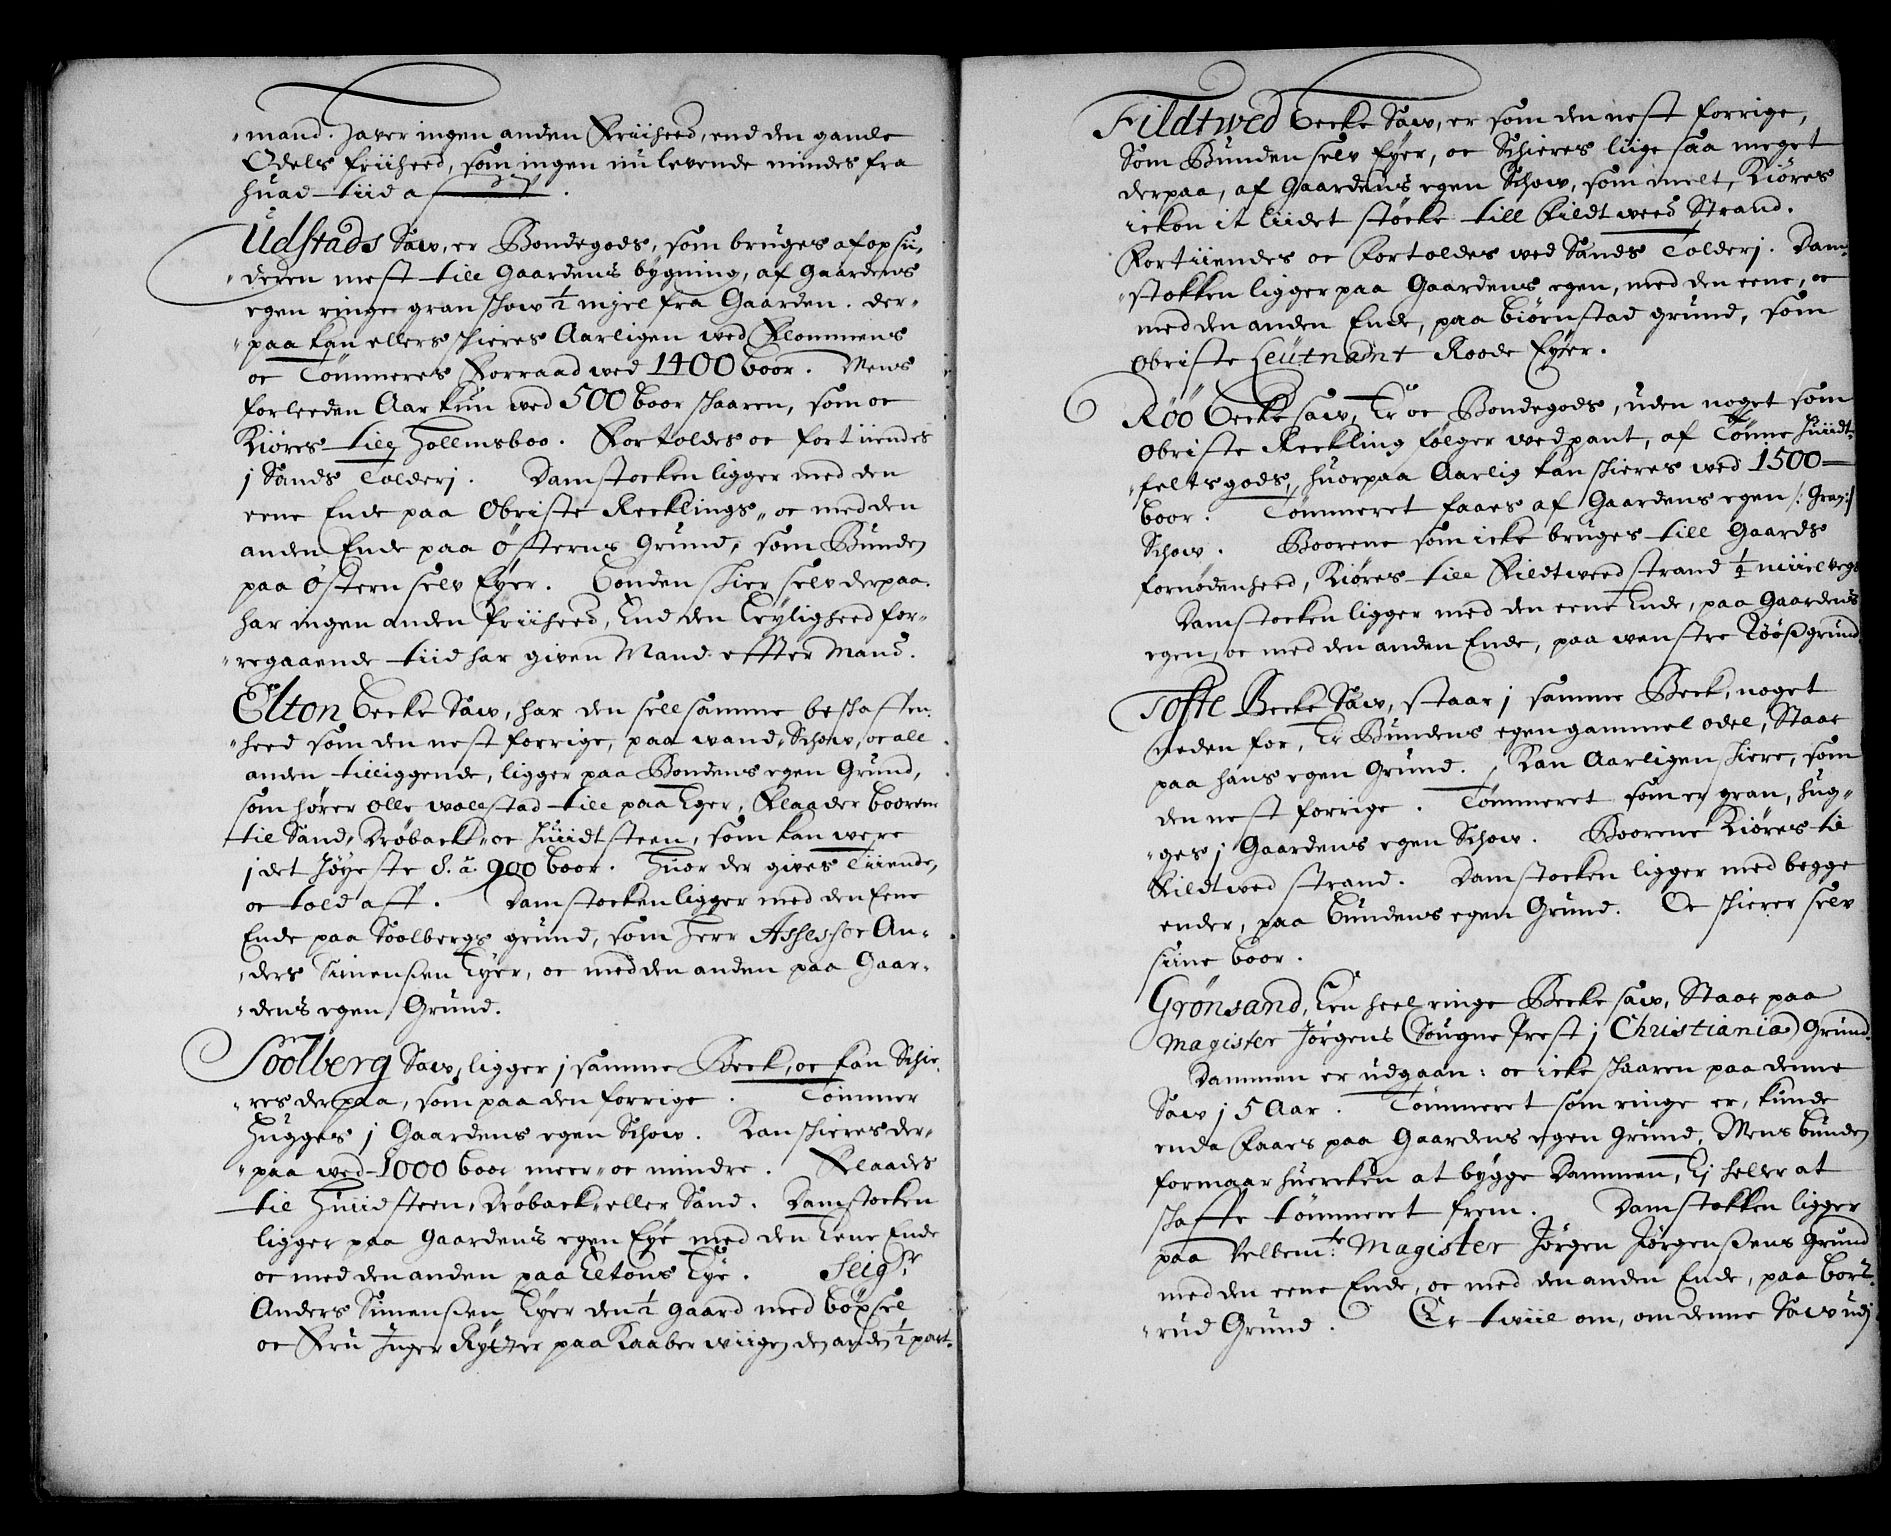 "mand. Haver ingen anden Friiheed, end den gamle
Odels friiheed, som ingen nu levende mindes fra
huad tiid af.
Udstads Saw, er Bondegods, som bruges af opsii„
„deren mest till Gaardens bygning, af Gaardens
egen ringe granschow ½ mijel fra Gaarden. der„
„paa kan ellers schieres Aarligen wed Flommens
oc Tømmeres Forraad wed 1400 boor. Mens
forleeden Aar kun wed 500 boor schaaren, som oc
Kiøres till Hollmsboo. Fortoldes oc fortiiendes
j Sands Tolderj. Damstocken ligger med den
eene Ende paa Obriste Recklings„ oc med den
anden Ende paa Østerns Grund, som Bunden
paa Østern selv Eyer. Bonden skier selv derpaa.
har ingen anden friiheed, End den Leyligheed for„
„regaaende tiid har given Mand effter Mand.
Elton becke Saw, har den sellsamme beschaffen„
„heed som den nest forrige, paa wand, Schow, oc all
anden tilliggende, ligger paa Bondens egen Grund,
som hører Olle wollstad till paa Eger, Flaader boorene
til Sand, Drøback„ oc Huidtsteen, som kan were
j det Høyeste 8. à 900 boor. Huor der gives Tiiende,
oc told aff. Damstocken ligger med den Eene
Ende paa Soolbergs grund, som Herr Assessor An„
„ders Simensen Eyer, oc med den anden paa Gaar„
„dens egen Grund.
Soolberg Saw, ligger j samme Beck, oc kan Schie„
„res derpaa, som paa den forrige. Tømmer
Hugges j Gaardens egen Schow. Kan schieres der„
„paa wed 1000 boor meer„ oc mindre. Flaades
til Huiidsteen, Drøback, eller Sand. Damstocken
ligger paa Gaardens egen Eye med den Eene Ende
oc med den anden paa Eltons Eye. Seigr
Anders Simensen Eyer den ½ gaard med bøxsel
oc Fru Inger Rytter paa Kaaberwiigen den anden ½ part.
Fildtwed becke Saw, er som den nest forrige,
Som Bunden selv Eyer, oc Schieres liige saa meget
derpaa, af Gaardens egen Schow, som melt, Kiøres
ickon it liidet støcke till Fildtweed Strand.
Fortiiendes oc Fortoldes wed Sands Tolderj. Dam„
„stokken ligger paa Gaardens egen, med den eene, oc
med den anden Ende, paa Biørnstad grund, som
Obriste Leutnant Roode Eyer.
Röö becke saw, Er oc Bondegods, uden noget som
Obriste Reckling følger wed pant, af Tønne Huiidt„
„feltsgods, huorpaa Aarlig kan schieres wed 1500
boor. Tømmeret faaes af Gaardens egen /: Gran:/
Schow. Boorene som icke bruges till Gaards
fornødenheed, Kiøres till Fildtweed strand ¼ miil wegs
Damstocken ligger med den eene Ende, paa Gaardens
egen, oc med den anden Ende, paa wenstre Röös grund
Tofte Becke Saw, staar j samme Beck, noget
neden for, Er Bundens egen gammel odel, Staar
paa hans egen Grund. Kan Aarligen schiere, som
den nest forrige. Tømmeret som er gran, hug„
„ges j Gaardens egen Schow. Boorene Kiøres til
Fildtwed strand. Damstocken ligger med begge
ender, paa bundens egen Grund. Oc schierer selv
siine boor.
Grønsand, Een heel ringe Becke saw, Staar paa
Magister Jørgens (Sougne Prest j Christiania) Grund.
Dammen er udgaan: oc icke schaaren paa denne
Saw j 5 Aar. Tømmeret som ringe er, kunde
enda Faaes paa Gaardens egen grund, Mens bunden
formaar huercken at bygge Dammen, Ej heller at
schaffe tømmeret frem. Damstokken ligger
paa Velbemte: Magister Jørgen Jørgensens Grund
med den eene Ende, oc med den anden Ende, paa
„rud Grund. Er twiil om, om denne Saw udj